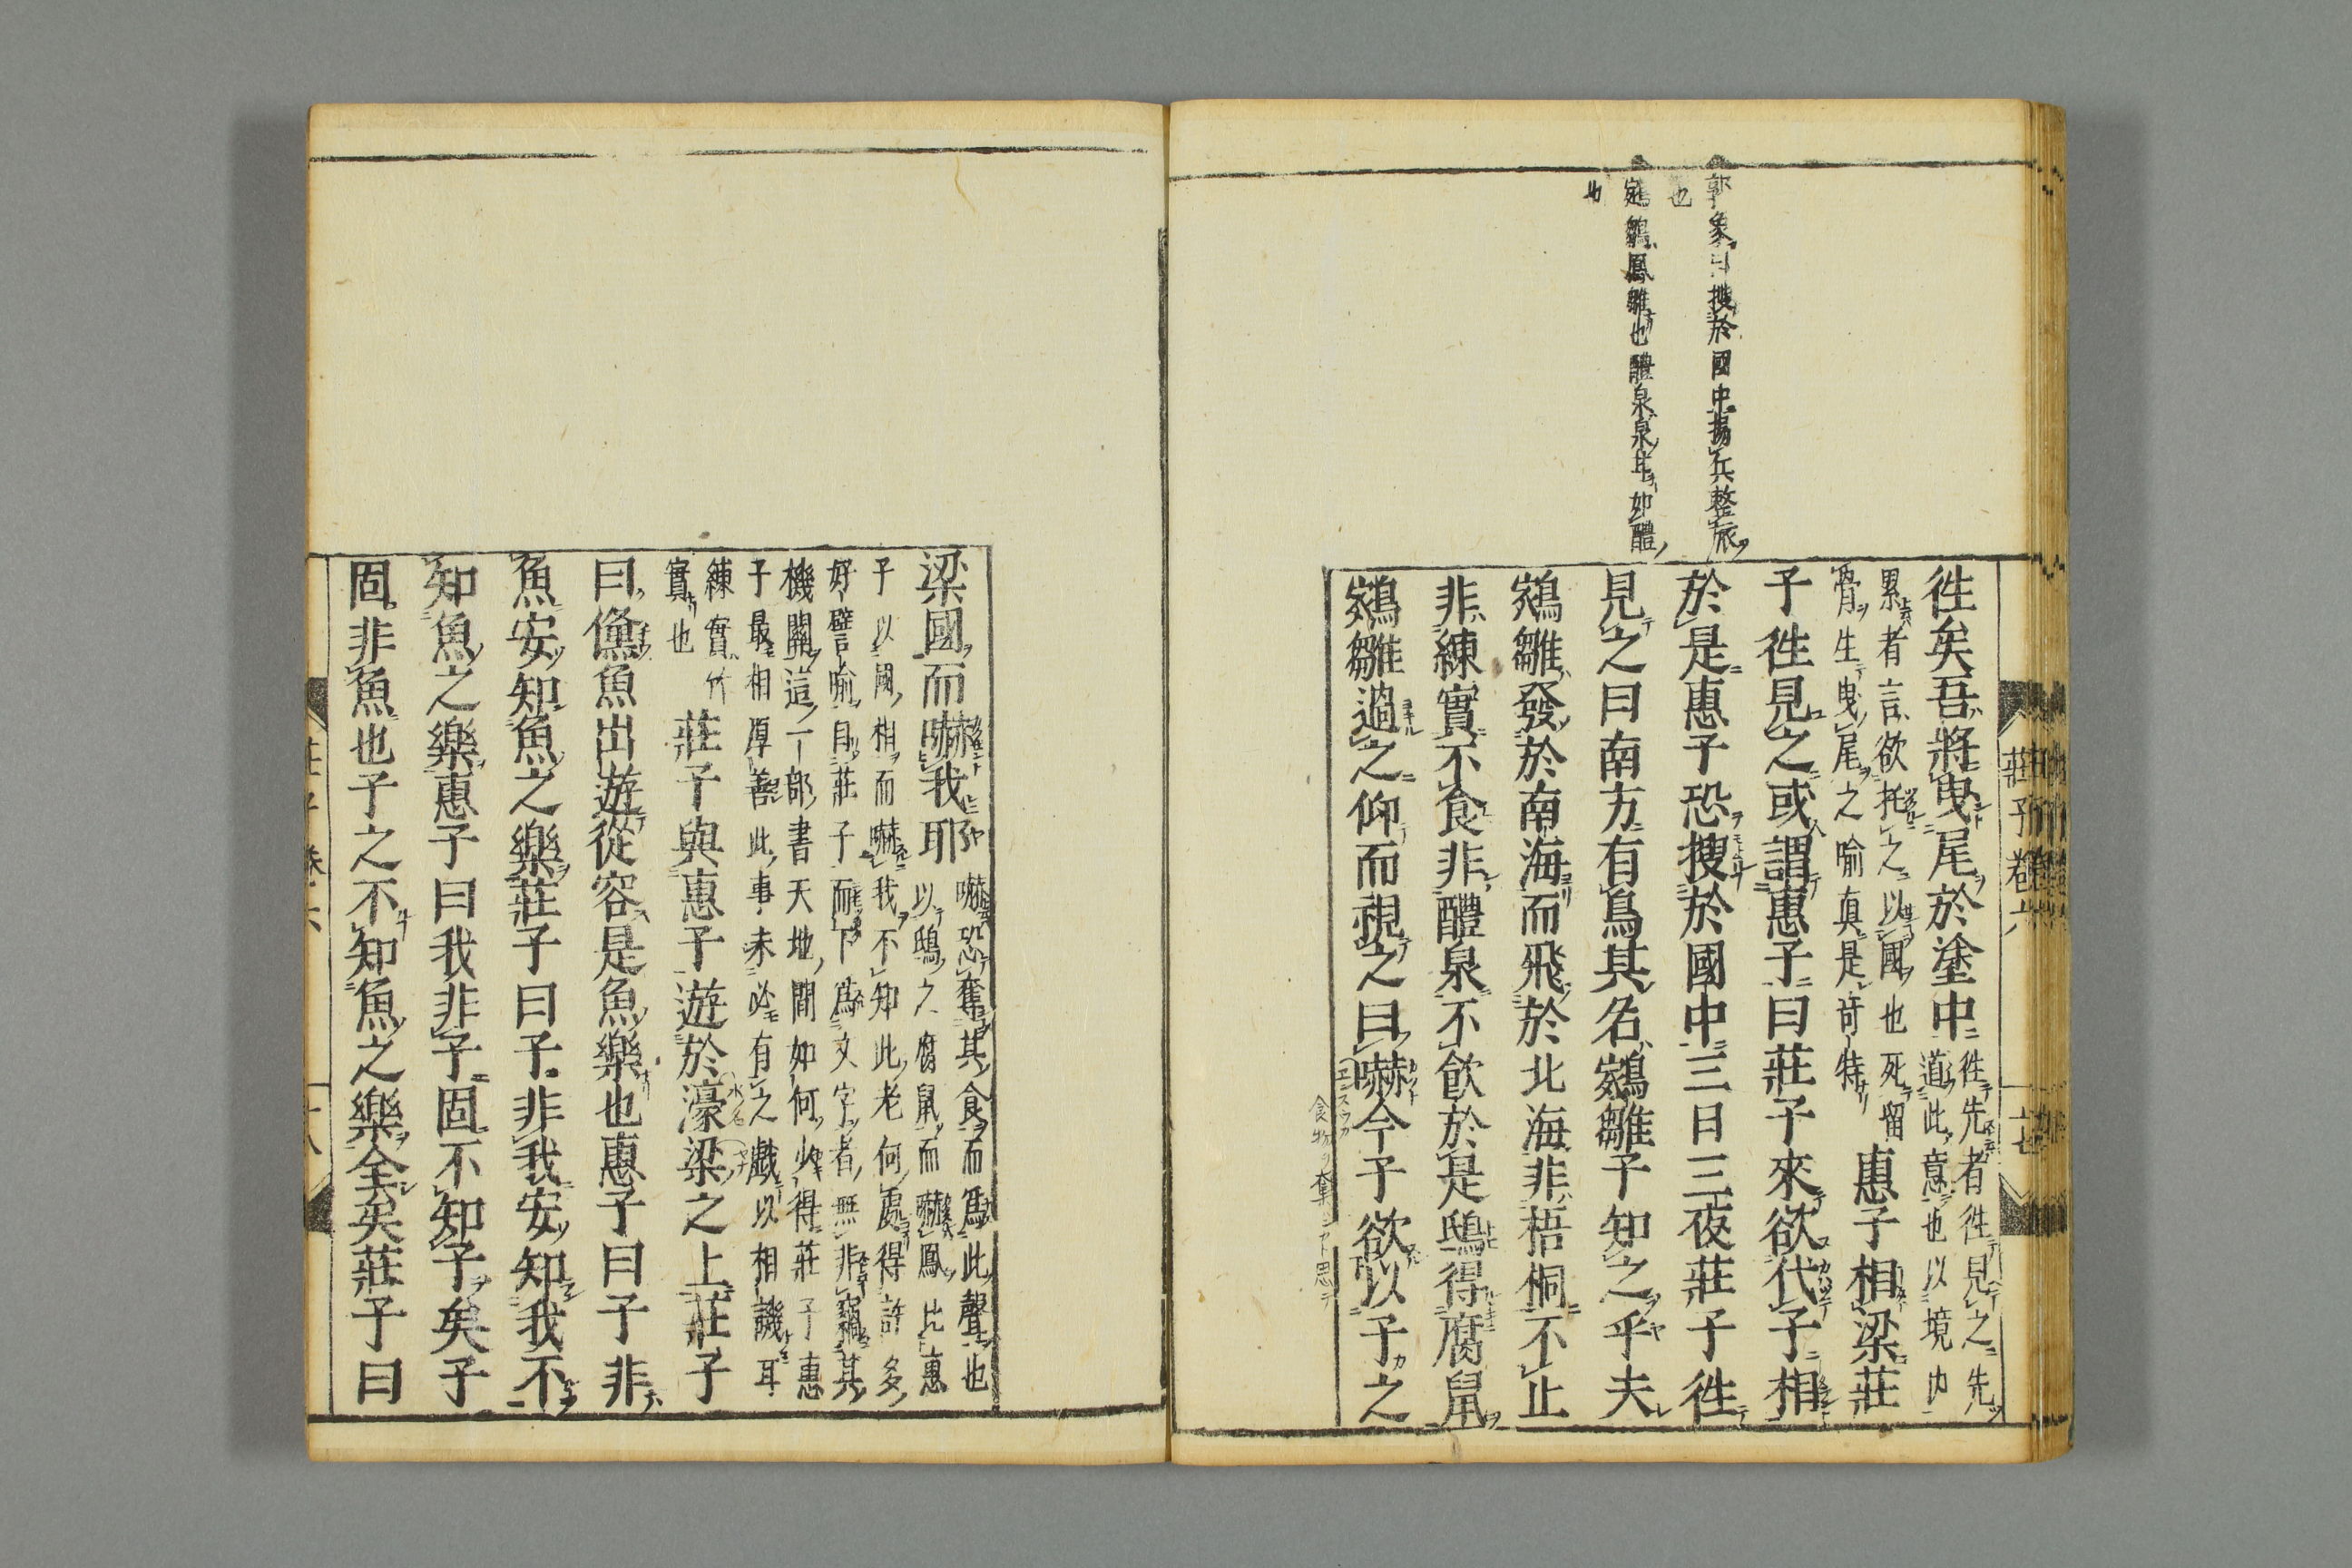 郭象曰搜於國中揚兵整旅
也
鵷鶵鳳雛也醴泉泉甘如醴
也
徃矣吾將曳尾於塗中
徃先者徃見之先
道此意也以境内
累者言欲托之以國也死留
骨生曳尾之喻真是竒特
惠子相梁莊
子徃見之或謂惠子曰莊子來欲代子相
於是惠子恐搜於國中三日三夜莊子徃
見之曰南方有鳥其名鵷鶵子知之乎夫
鵷鶵發於南海而飛於北海非梧桐不止
非練實不食非醴泉不飲於是鴟得腐鼠
鵷鶵過之仰而視之曰嚇今子欲以子之
莊子卷六
梁國而嚇我耶
嚇恐奪其食而爲此聲也
以鴟之腐鼠而嚇鳳比惠
子以國相而嚇我不知此老何處得許多
好譬喻自莊子而下爲文字者無非竊其
機關這一部書天地間如何少得莊子惠
子最相厚善此事未必有之戲以相譏耳
練實竹
實也
莊子與惠子遊於濠梁之上莊子
曰鯈魚出遊從容是魚樂也惠子曰子非
魚安知魚之樂莊子曰子非我安知我不
知魚之樂惠子曰我非子固不知子矣子
固非魚也子之不知魚之樂全矣莊子曰